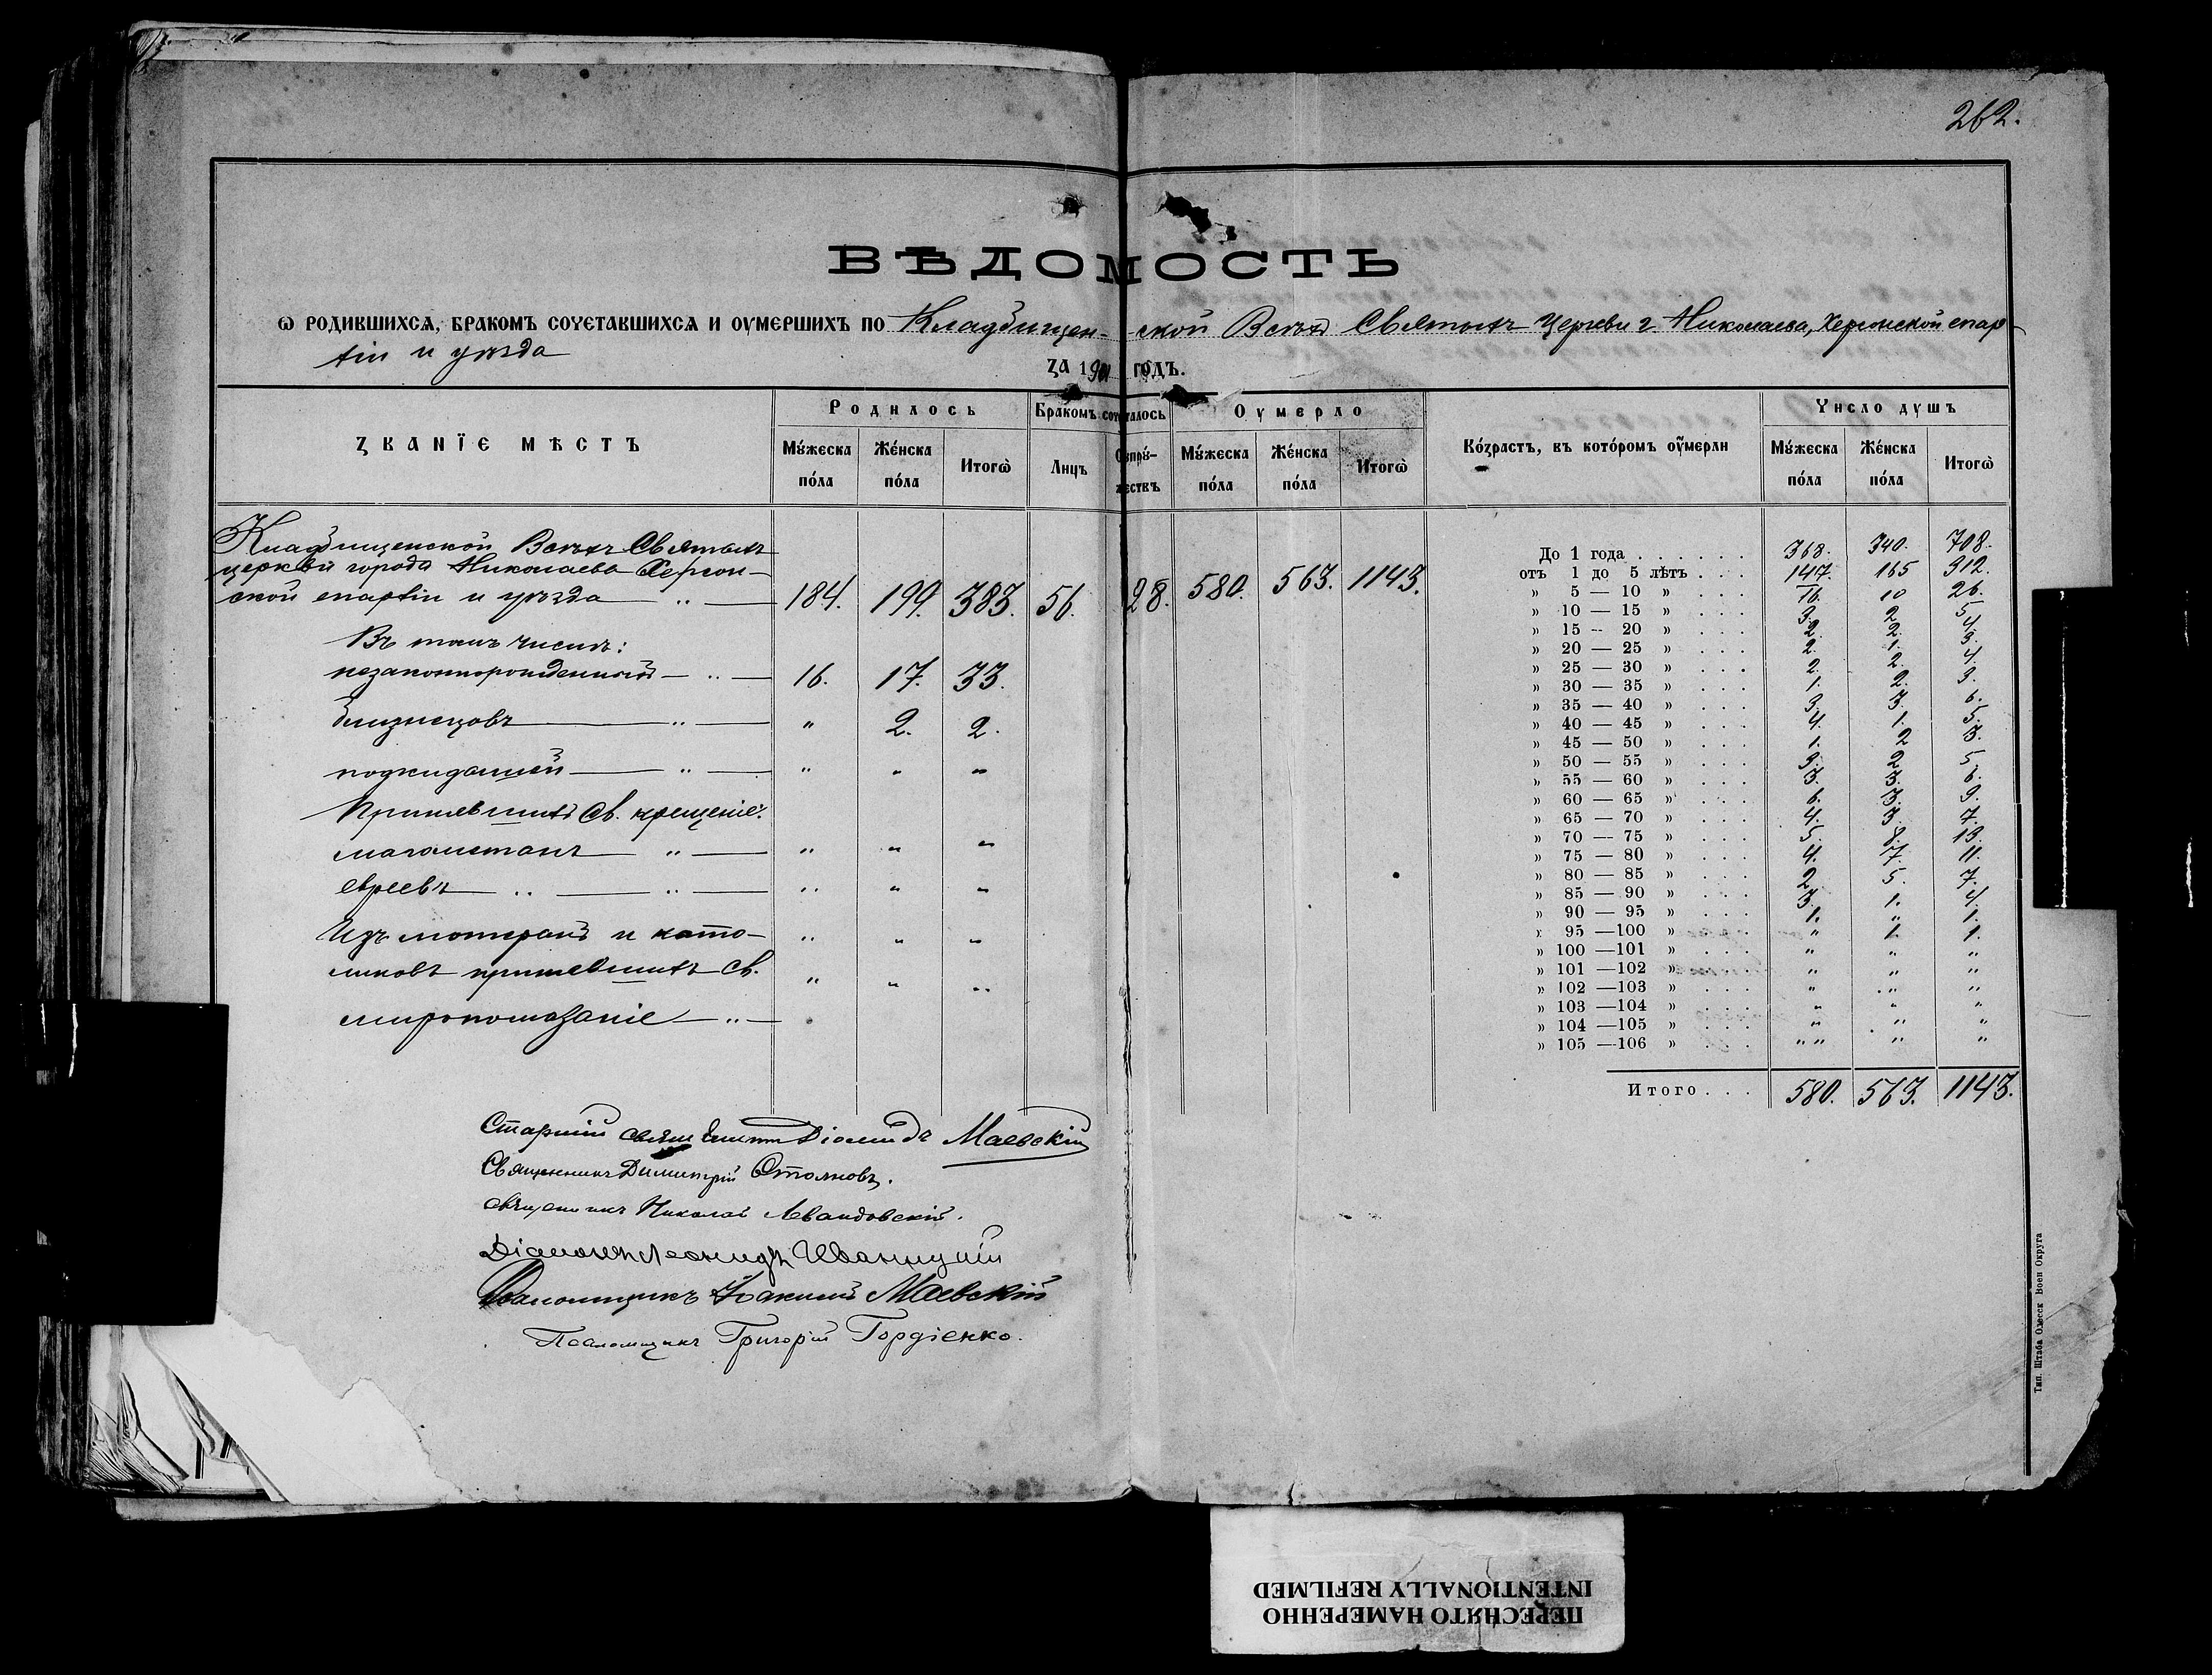 262.
ВѢДОМОСТЬ
Ѡ РОДИВШИХСѦ, БРАКОМЪ СОЧЕТАВШИХСѦ И ОУМЕРШИХЪ ПО Кладбищен- ской Всѣхъ Святыхъ Церкви г. Николаева, Херсонской епар-
хіи и уѣзда
ЗА 1901 ГОДЪ.
ЗВАНЇЕ МѢСТЪ
Родилось
Бракомъ сочеталось
Оумерло
Во́зрастъ, въ кото́ромъ оу́мерли
Число душъ
Му́жеска по́ла
Же́нска по́ла
Итогѡ̀
Лицъ
Супру́-жествъ
Му́жеска по́ла
Же́нска по́ла
Итогѡ̀
Му́жеска по́ла
Же́нска по́ла
Итогѡ̀
Кладбищенской Всѣхъ Святыхъ
церкви города Николаева Херсон-
ской епархіи и уѣзда — „ — 184. 199. 383. 56. 28. 580. 563. 1143.
Въ томъ числѣ:
незаконнорожденныхъ — „ — 16. 17. 33.
близнецовъ — „ — „ 2. 2.
подкидышей — „ — „ „ „
Принявшихъ Св. крещеніе:
магометанъ — „ — „ „ „
евреевъ — „ — „ — „ „ „
Изъ лютеранъ и като- „ „ „
ликовъ принявшихъ св. „ „ „
миропомазаніе — „ —
До 1 года . . . . . . 368. 340. 708.
отъ 1 до 5 лѣтъ . . . 147. 165 312.
» 5 — 10 » . . . 16. 10 26.
» 10 — 15 » . . . 3. 2 5
» 15 — 20 » . . . 2. 2. 4.
» 20 — 25 » . . . 2. 1. 3.
» 25 — 30 » . . . 2. 2. 4.
» 30 — 35 » . . . 1. 2. 3.
» 35 — 40 » . . . 3. 3. 6.
» 40 — 45 » . . . 4. 1. 5.
» 45 — 50 » . . . 1. 2 3.
» 50 — 55 » . . . 3. 2 5.
» 55 — 60 » . . . 3. 3. 6.
» 60 — 65 » . . . 6. 3. 9.
» 65 — 70 » . . . 4. 3. 7.
» 70 — 75 » . . . 5. 8. 13.
» 75 — 80 » . . . 4. 7. 11.
» 80 — 85 » . . . 2 5. 7.
» 85 — 90 » . . . 3. 1. 4.
» 90 — 95 » . . . 1. „ 1.
» 95 —100 » . . . „ 1. 1.
» 100 —101 » . . . „ „ „
» 101 —102 » . . . „ „ „
» 102 —103 » . . . „ „ „
» 103 —104 » . . . „ „ „
» 104 —105 » . . . „ „ „
» 105 —106 » . . . „ „ „ „
Итого . . . 580. 563. 1143.
Старшій священникъ Діомидъ Маевскій
Священникъ Димитрій Стояновъ.
священникъ Николай Левандовскій.
Діаконъ Леонидъ Иваницкій
Псаломщикъ Іоакимъ Маевскій
Псаломщикъ Григорій Гордіенко.
Тип. Штаба Одесск Воен Округа
ПЕРЕСНЯТО НАМЕРЕННО
INTENTIONALLY REFILMED